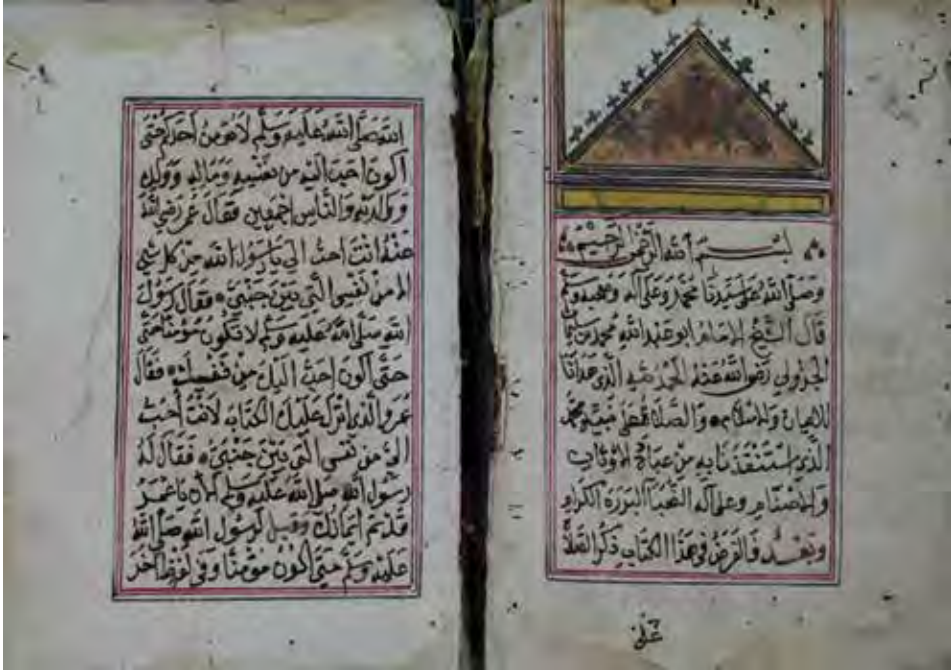 بسم الله الرحمن الرحيم
وصلى الله على سيدنا محمد وعلى آله وصحبه وسلم
قال الشيخ الامام ابو عبد الله محمد بن سليمان
الجزولي رضي الله عنه الحمد لله الذي هدانا
للايمان والاسلام والصلاة على نبيه محمد
الذي استنقذنا به من عبادة الاوثان
والاصنام وعلى آله النجباء البررة الكرام
وبعد فالغرض في هذا الكتاب ذكر الصلاة
على
الله صلى الله عليه وسلم لا يؤمن احدكم حتى
اكون احب اليه من نفسه وماله وولده
ووالديه والناس اجمعين فقال عمر رضي الله
عنه انت احب الي يا رسول الله من كل شيء
الا من نفسي التي بين جنبي فقال رسول
الله صلى الله عليه وسلم لا تكون مؤمنا حتى
حتى اكون احب اليك من نفسك فقال
عمر والذي انزل عليك الكتاب لانت احب
الي من نفسي التي بين جنبي فقال له
رسول الله صلى الله عليه وسلم الآن يا عمر
قد تم ايمانك وقيل لرسول الله صلى الله
عليه وسلم متى اكون مؤمنا وفي لفظ آخر